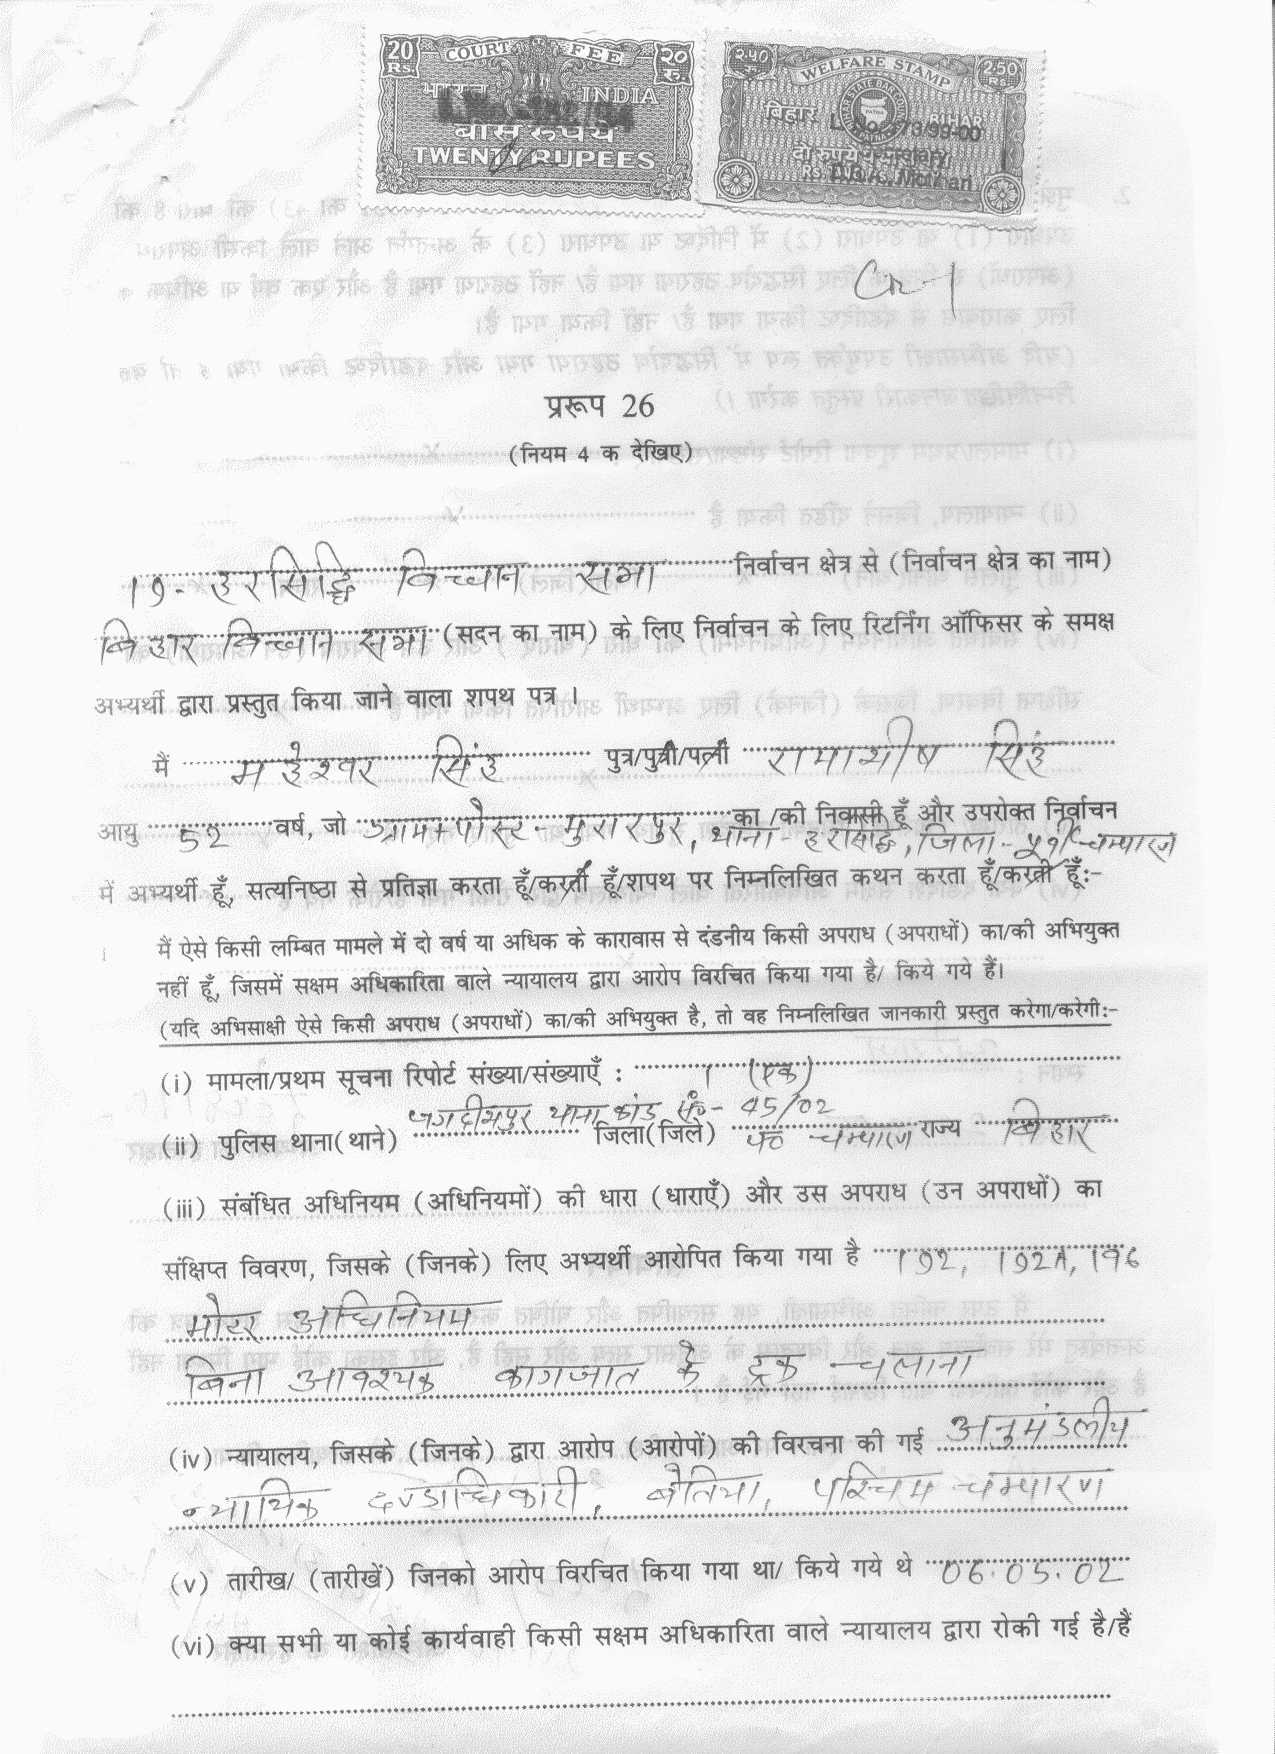 20 Rs. COURT FEE २० रु.
भारत INDIA
बीस रुपये
TWENTY RUPEES
२.५० रु. WELFARE STAMP 2.50 Rs.
बिहार BIHAR
L. No. 73/99-00
प्ररूप 26
(नियम 4 क देखिए)
19- हरसिद्धि विधान सभा निर्वाचन क्षेत्र से (निर्वाचन क्षेत्र का नाम)
बिहार विधान सभा (सदन का नाम) के लिए निर्वाचन के लिए रिटर्निंग ऑफिसर के समक्ष
अभ्यर्थी द्वारा प्रस्तुत किया जाने वाला शपथ पत्र ।
मैं महेश्वर सिंह पुत्र/पुत्री/पत्नी रामाशीष सिंह
आयु 52 वर्ष, जो ग्राम+पोस्ट-मुरारपुर, का /की निवासी हूँ और उपरोक्त निर्वाचन
थाना-हरसिद्धि, जिला-पूर्वी चम्पारण
में अभ्यर्थी हूँ, सत्यनिष्ठा से प्रतिज्ञा करता हूँ/करती हूँ/शपथ पर निम्नलिखित कथन करता हूँ/करती हूँ:-
मैं ऐसे किसी लम्बित मामले में दो वर्ष या अधिक के कारावास से दंडनीय किसी अपराध (अपराधों) का/की अभियुक्त
नहीं हूँ, जिसमें सक्षम अधिकारिता वाले न्यायालय द्वारा आरोप विरचित किया गया है/ किये गये हैं।
(यदि अभिसाक्षी ऐसे किसी अपराध (अपराधों) का/की अभियुक्त है, तो वह निम्नलिखित जानकारी प्रस्तुत करेगा/करेगी:-
(i) मामला/प्रथम सूचना रिपोर्ट संख्या/संख्याएँ : 1 (एक)
जगदीशपुर थाना कांड सं०- 45/02
(ii) पुलिस थाना(थाने) जिला(जिले) प० चम्पारण राज्य बिहार
(iii) संबंधित अधिनियम (अधिनियमों) की धारा (धाराएँ) और उस अपराध (उन अपराधों) का
संक्षिप्त विवरण, जिसके (जिनके) लिए अभ्यर्थी आरोपित किया गया है 192, 192A, 196
मोटर अधिनियम
बिना आवश्यक कागजात के ट्रक चलाना
(iv) न्यायालय, जिसके (जिनके) द्वारा आरोप (आरोपों) की विरचना की गई अनुमंडलीय
न्यायिक दण्डाधिकारी, बेतिया, पश्चिम चम्पारण
(v) तारीख/ (तारीखें) जिनको आरोप विरचित किया गया था/ किये गये थे 06.05.02
(vi) क्या सभी या कोई कार्यवाही किसी सक्षम अधिकारिता वाले न्यायालय द्वारा रोकी गई है/हैं